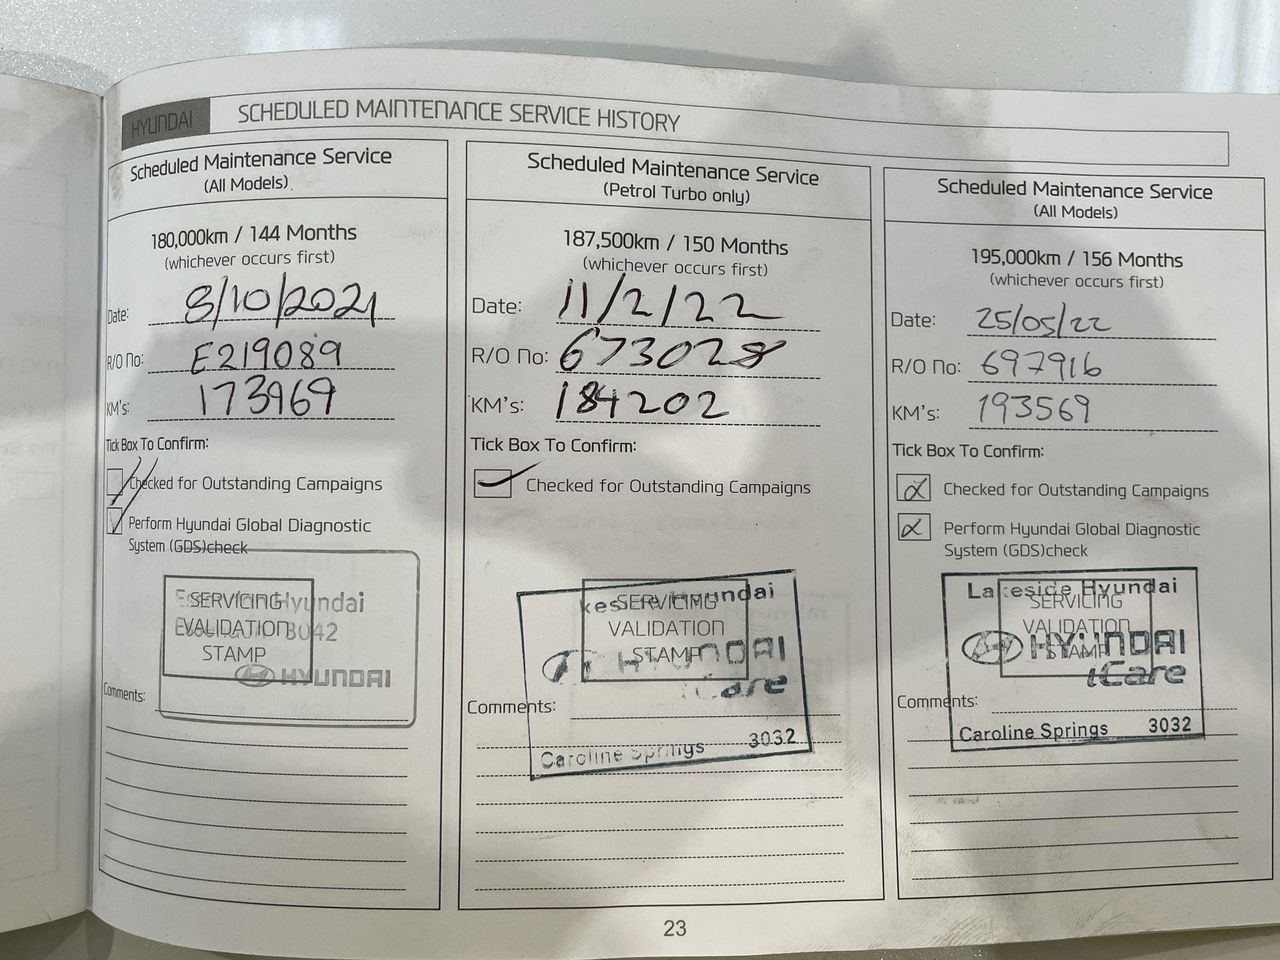 HYUNDAI
SCHEDULED MAINTENANCE SERVICE HISTORY
Scheduled Maintenance Service
(All Models)
180,000km / 144 Months
(whichever occurs first)
Date: 8/10/2021
R/O No: E219089
KM's: 173969
Tick Box To Confirm:
Checked for Outstanding Campaigns
Perform Hyundai Global Diagnostic
System (GDS)check
Hyundai
SERVICING
3042
VALIDATION
STAMP
HYUNDAI
Comments:
Scheduled Maintenance Service
(Petrol Turbo only)
187,500km / 150 Months
(whichever occurs first)
Date: 11/2/22
R/O No: 673028
KM's: 184202
Tick Box To Confirm:
Checked for Outstanding Campaigns
Hyundai
SERVICING
VALIDATION
STAMP
HYUNDAI
iCare
Comments:
Caroline Springs 3032
Scheduled Maintenance Service
(All Models)
195,000km / 156 Months
(whichever occurs first)
Date: 25/05/22
R/O No: 697916
KM's: 193569
Tick Box To Confirm:
Checked for Outstanding Campaigns
Perform Hyundai Global Diagnostic
System (GDS)check
Lakeside Hyundai
SERVICING
VALIDATION
STAMP
HYUNDAI
iCare
Comments:
Caroline Springs 3032
23